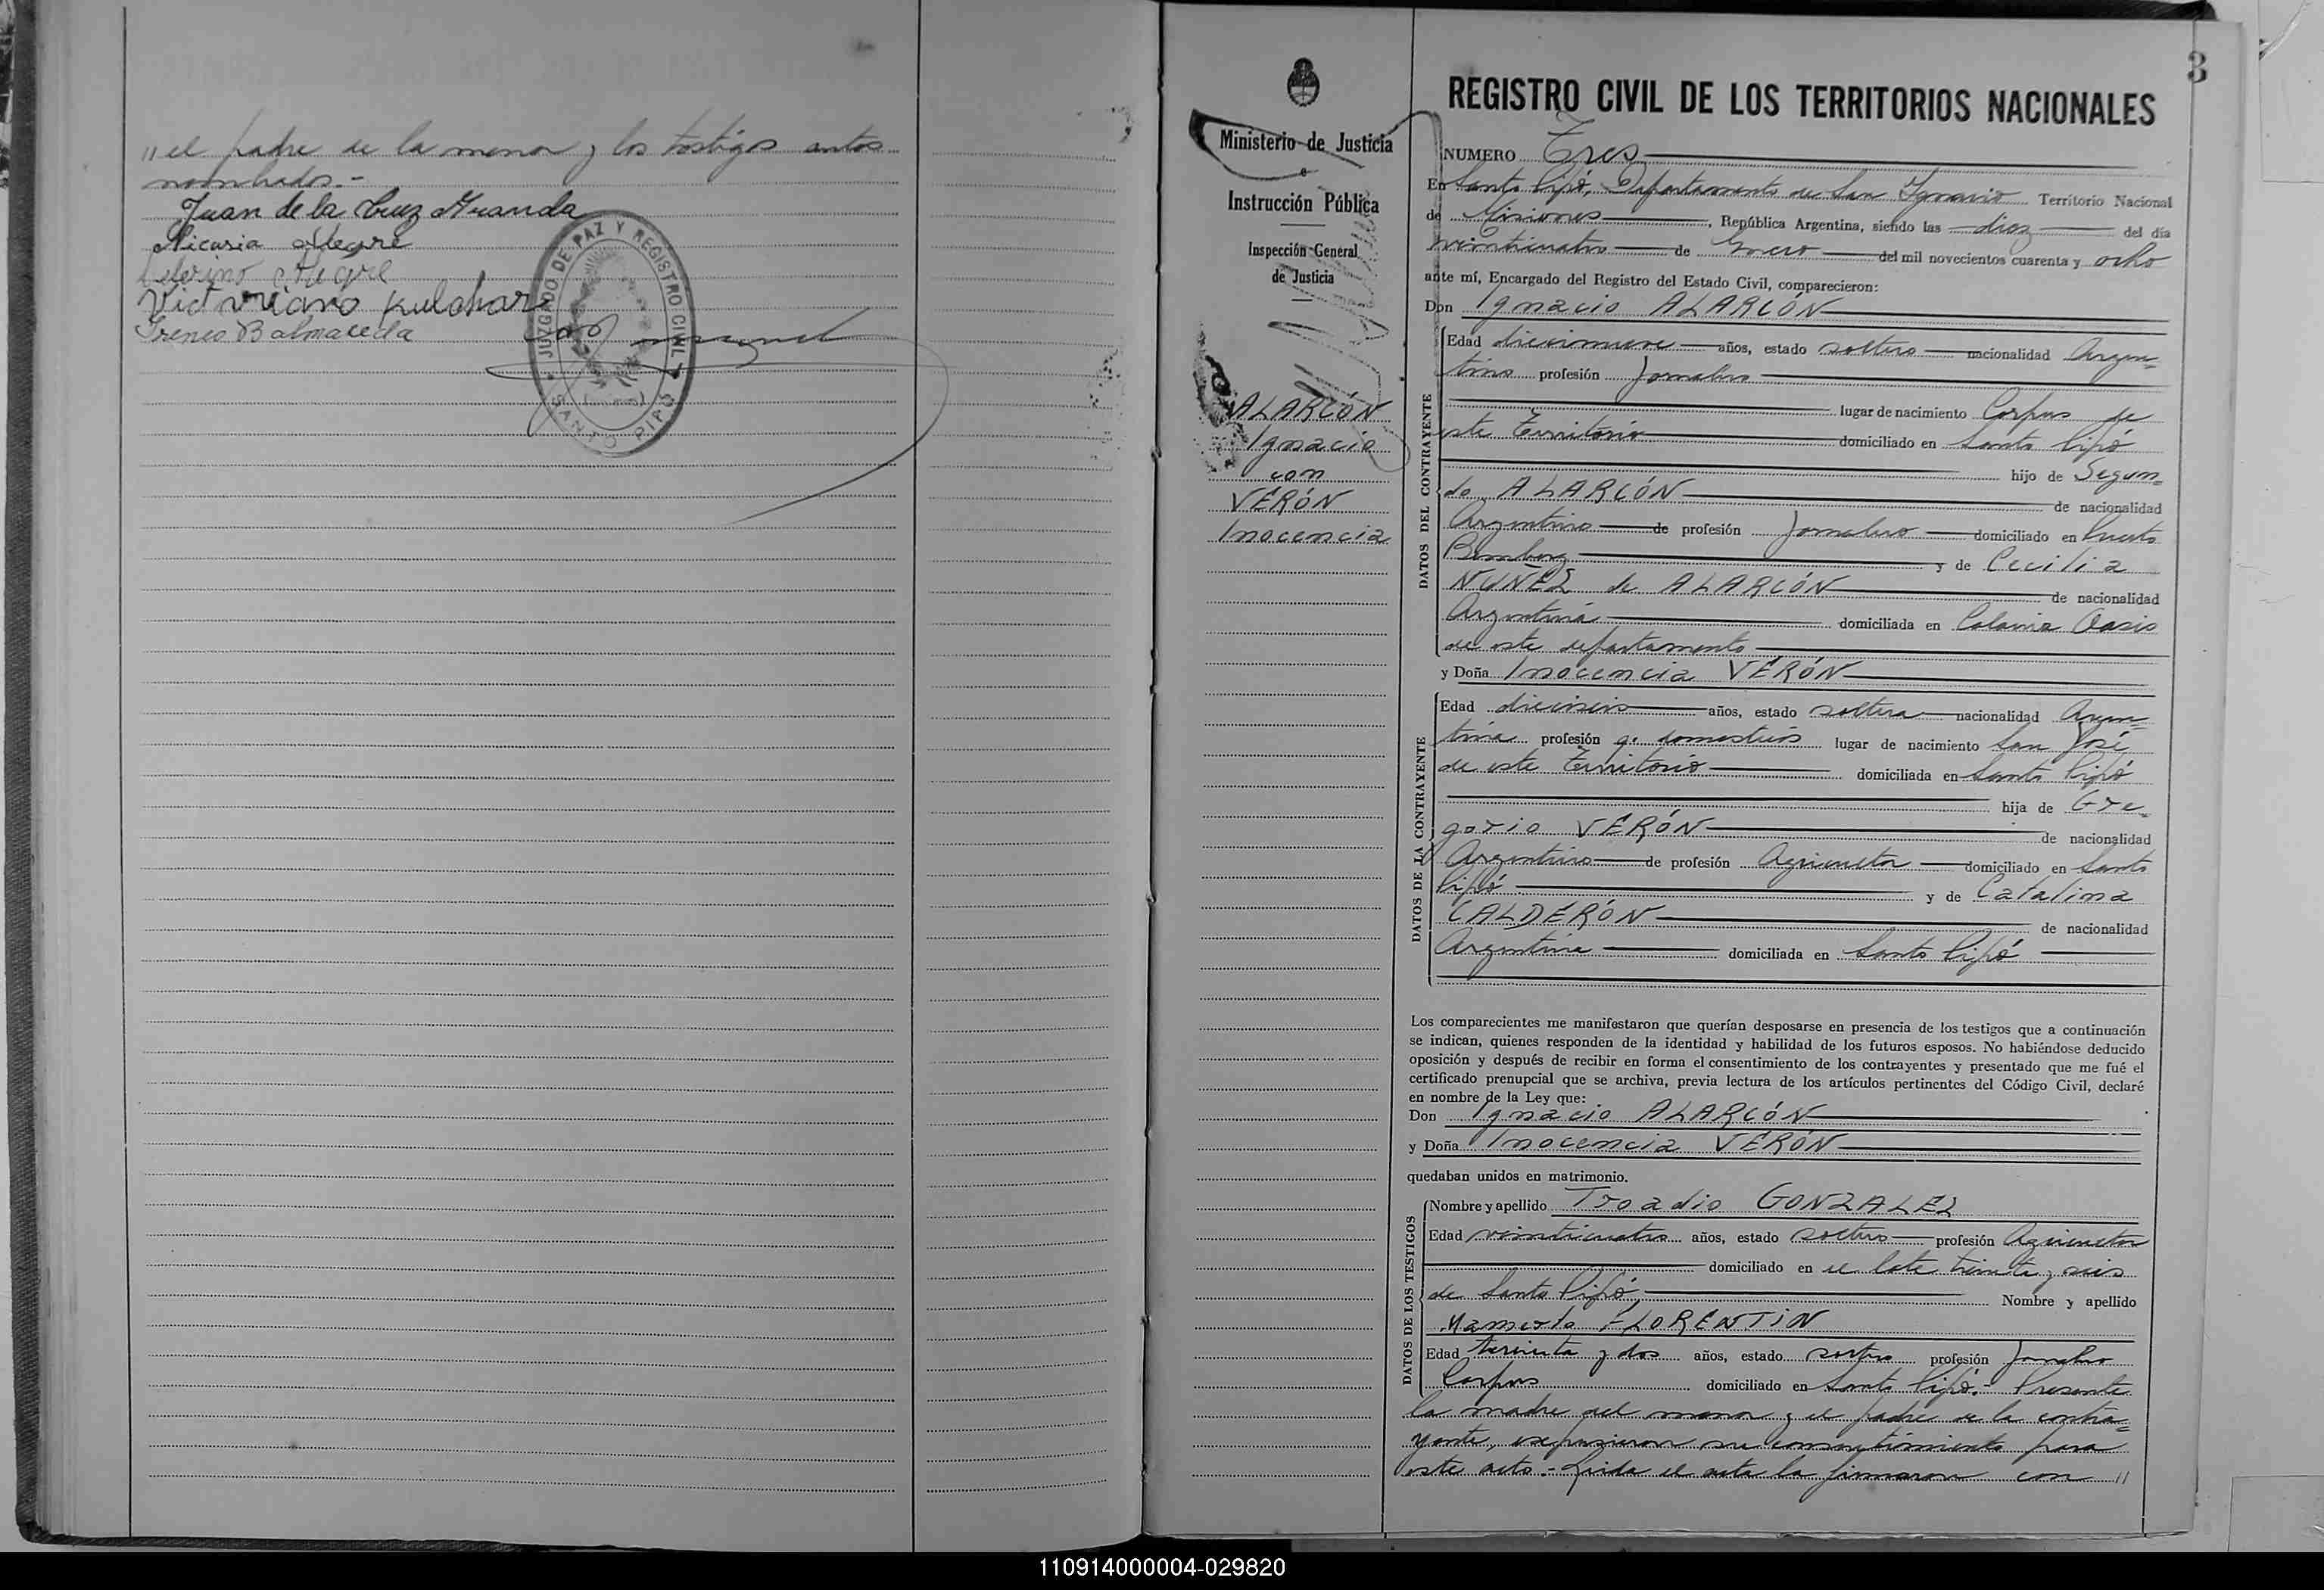 " el padre de la menor y los testigos antes
nombrados.-
Juan de la Cruz Miranda
Nicasia Alegre
Ceferino Alegre
Victoriano
Ireneo Balmaceda
JUZGADO DE PAZ Y REGISTRO CIVIL
SANTO PIPÓ
3
Ministerio de Justicia
e
Instrucción Pública
Inspección General
de Justicia
ALARCÓN
Ignacio
con
VERÓN
Inocencia
REGISTRO CIVIL DE LOS TERRITORIOS NACIONALES
NUMERO Tres
En Santo Pipó, Departamento de San Ignacio Territorio Nacional
de Misiones, República Argentina, siendo las diez del día
veinticuatro de Enero del mil novecientos cuarenta y ocho
ante mí, Encargado del Registro del Estado Civil, comparecieron:
Don Ignacio ALARCÓN
DATOS DEL CONTRAYENTE
Edad diecinueve años, estado soltero nacionalidad Argen=
tino profesión Jornalero
lugar de nacimiento Corpus de
este Territorio domiciliado en Santo Pipó
hijo de Segun=
do ALARCÓN de nacionalidad
Argentino de profesión Jornalero domiciliado en Puerto
Bemberg y de Cecilia
NUÑEZ de ALARCÓN de nacionalidad
Argentina domiciliada en Colonia Oasis
de este departamento
y Doña Inocencia VERÓN
DATOS DE LA CONTRAYENTE
Edad dieciseis años, estado soltera nacionalidad Argen=
tina profesión q. domesticos lugar de nacimiento San José
de este Territorio domiciliada en Santo Pipó
hija de Gre=
gorio VERÓN de nacionalidad
Argentino de profesión Agricultor domiciliado en Santo
Pipó y de Catalina
CALDERÓN de nacionalidad
Argentina domiciliada en Santo Pipó
Los comparecientes me manifestaron que querían desposarse en presencia de los testigos que a continuación
se indican, quienes responden de la identidad y habilidad de los futuros esposos. No habiéndose deducido
oposición y después de recibir en forma el consentimiento de los contrayentes y presentado que me fué el
certificado prenupcial que se archiva, previa lectura de los artículos pertinentes del Código Civil, declaré
en nombre de la Ley que:
Don Ignacio ALARCÓN
y Doña Inocencia VERÓN
quedaban unidos en matrimonio.
DATOS DE LOS TESTIGOS
Nombre y apellido Troadio GONZALEZ
Edad veinticuatro años, estado soltero profesión Agricultor
domiciliado en el lote treinta y seis
de Santo Pipó, Nombre y apellido
Mamerto FLORENTIN
Edad treinta y dos años, estado profesión Jornalero
Corpus domiciliado en Santo Pipó.- Presente
la madre del menor y el padre de la contra=
yente, expusieron su consentimiento para
este acto.- Leida el acta la firmaron con "
110914000004-029820